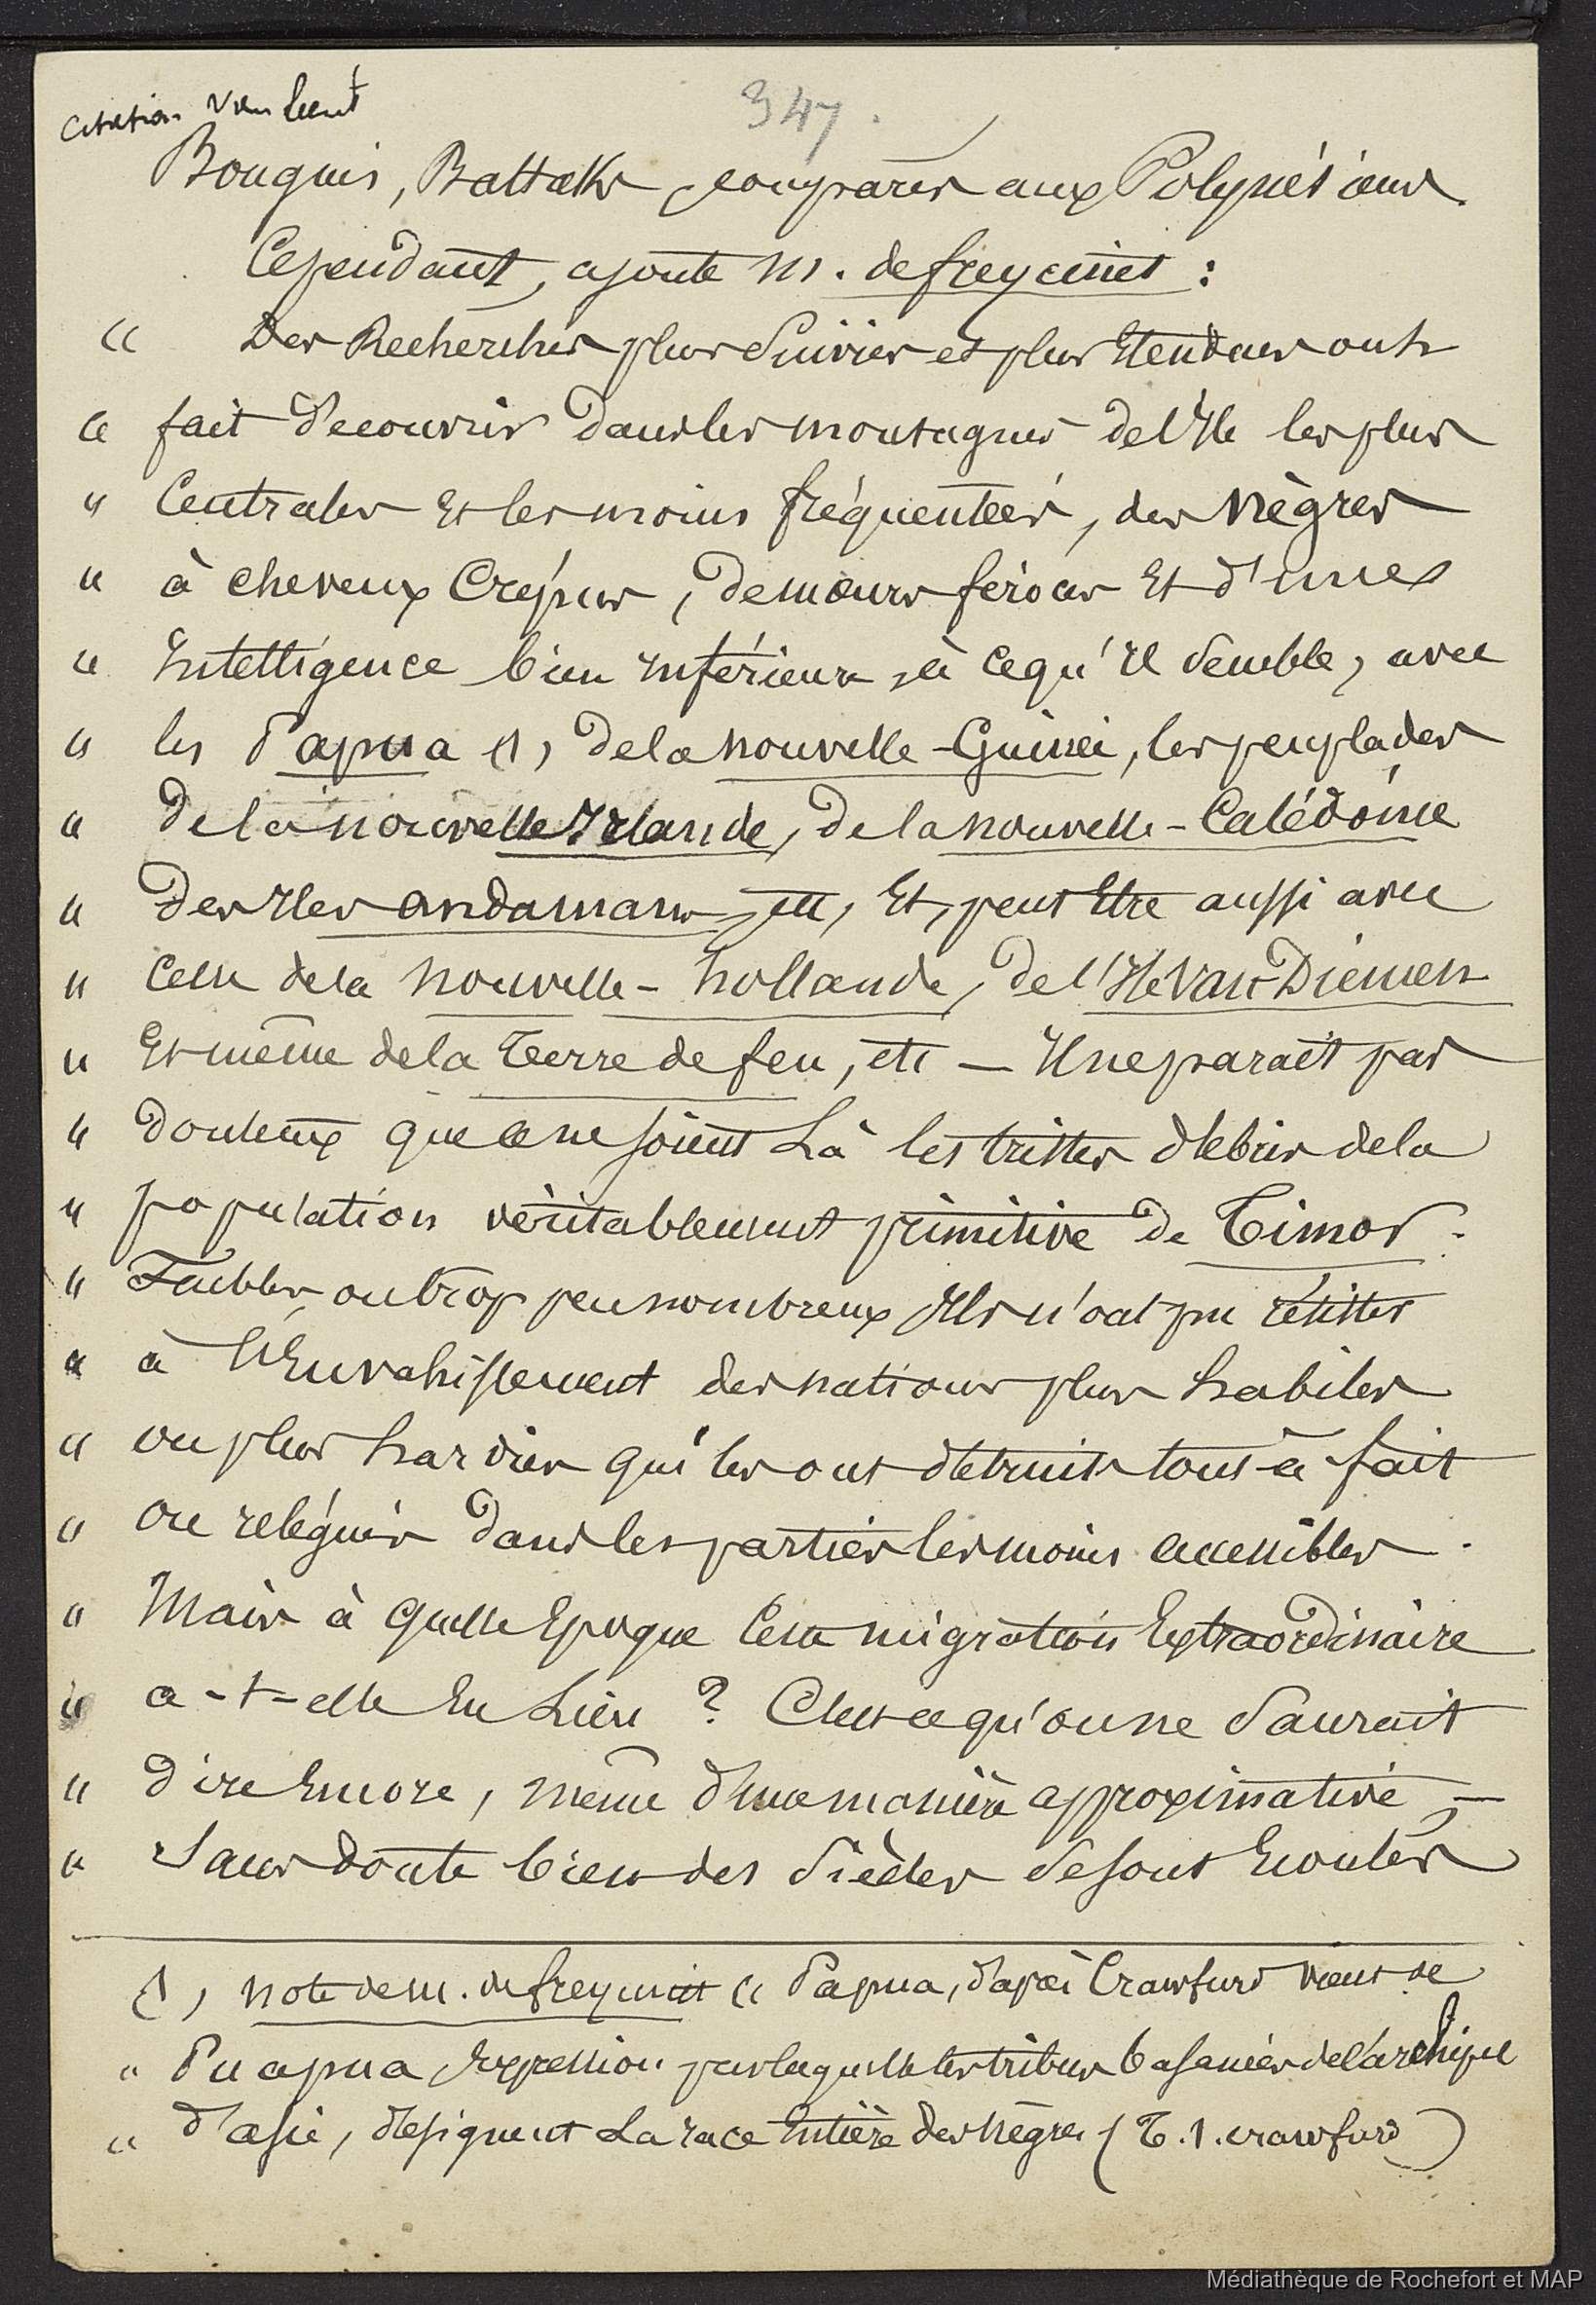 citation
347.
Bouguis, Battaks, comparés aux Polynésiens.
Cependant, ajoute M. de freycinet :
" Des Recherches plus Suivies et plus Etendues ont
" fait Découvrir Dans les montagnes de l'Ile les plus
" Centrales Et les moins fréquentées, des Nègres
" à cheveux Crépus, De mœurs féroces Et d'une
" Intelligence bien Inférieure, à ce qu'Il Semble, avec
" les Papua (1) De la nouvelle-Guinée, les peuplades
" De la nouvelle Irlande, De la nouvelle-Calédonie
" Des Iles andamans, etc, Et, peut Etre aussi avec
" Celle de la nouvelle-hollande, De l'Ile Van-Diemen
" Et même de la Terre de feu, etc — Il ne parait pas
" Douteux que ce ne soient Là les tristes débris de la
" population véritablement primitive De Timor.
" Faibles, ou trop peu nombreux Ils n'ont pu résister
" à l'Envahissement des nations plus habiles
" ou plus hardies qui les ont détruits tout-à-fait
" ou relégués Dans les parties les moins accessibles.
" Mais à quelle Epoque Cette migration Extraordinaire
" a-t-elle Eu Lieu ? C'est ce qu'on ne Saurait
" Dire Encore, même d'une manière approximative —
" Sans doute bien des Siècles se sont Ecoulés
(1) note de M. de freycinet " Papua, d'après Crawfurd vient de
" Puapua Expression par laquelle les tribus basanées de l'archipel
" d'asie, désignent La race Entière des Nègres (T.1. crawfurd)
Médiathèque de Rochefort et MAP